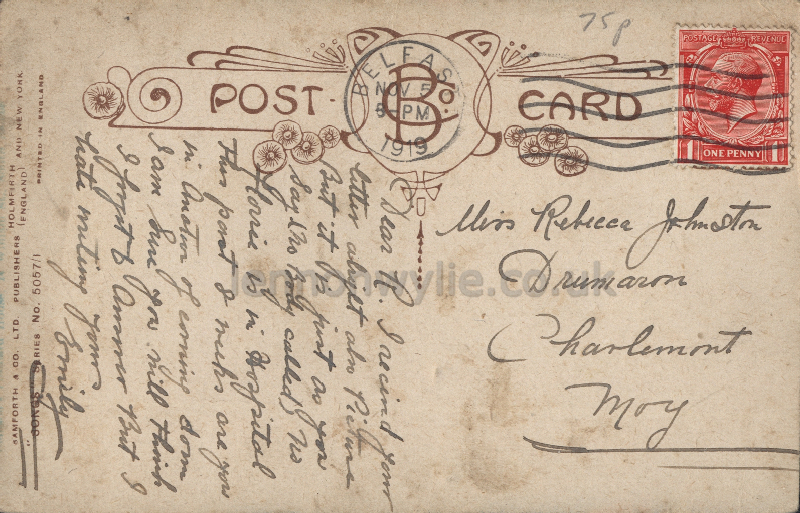 75p
POST CARD
B
BELFAST
NOV 5
8 PM
1919
POSTAGE REVENUE
1 ONE PENNY 1
Miss Rebecca Johnston
Drumaron
Charlemont
Moy
Dear R. I receivd your
letter alright also Picture
But it is just as you
say No Body called, No
Florrie is in Hospital
This past 2 weeks are you
in Anotion of coming down
I am sure you will think
I forgot to Answer But I
hate writing yours
Emily
BAMFORTH & CO. LTD. PUBLISHERS HOLMFIRTH (ENGLAND) AND NEW YORK.
"SONGS" SERIES NO. 5057/1
PRINTED IN ENGLAND
lennonwylie.co.uk